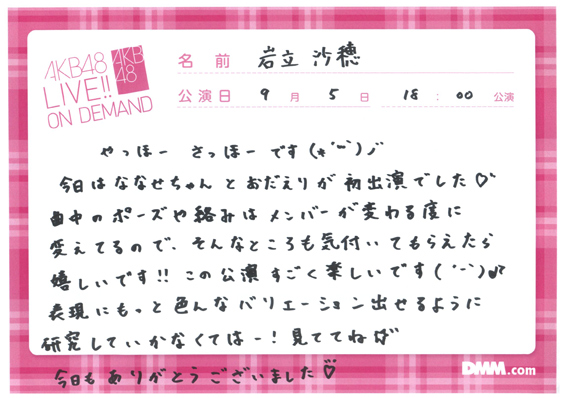 AKB48
LIVE!!
ON DEMAND
AKB
48
名前 岩立 沙穂
公演日 9月 5日 18:00 公演
やっほー さっほーです(*'ー')ノ
今日はななせちゃんとおだえりが初出演でした♡
曲中のポーズや絡みはメンバーが変わる度に
変えてるので、そんなところも気付いてもらえたら
嬉しいです!! この公演すごく楽しいです('ー')♪
表現にもっと色んなバリエーション出せるように
研究していかなくてはー!見ててねっ
今日もありがとうございました♡
DMM.com